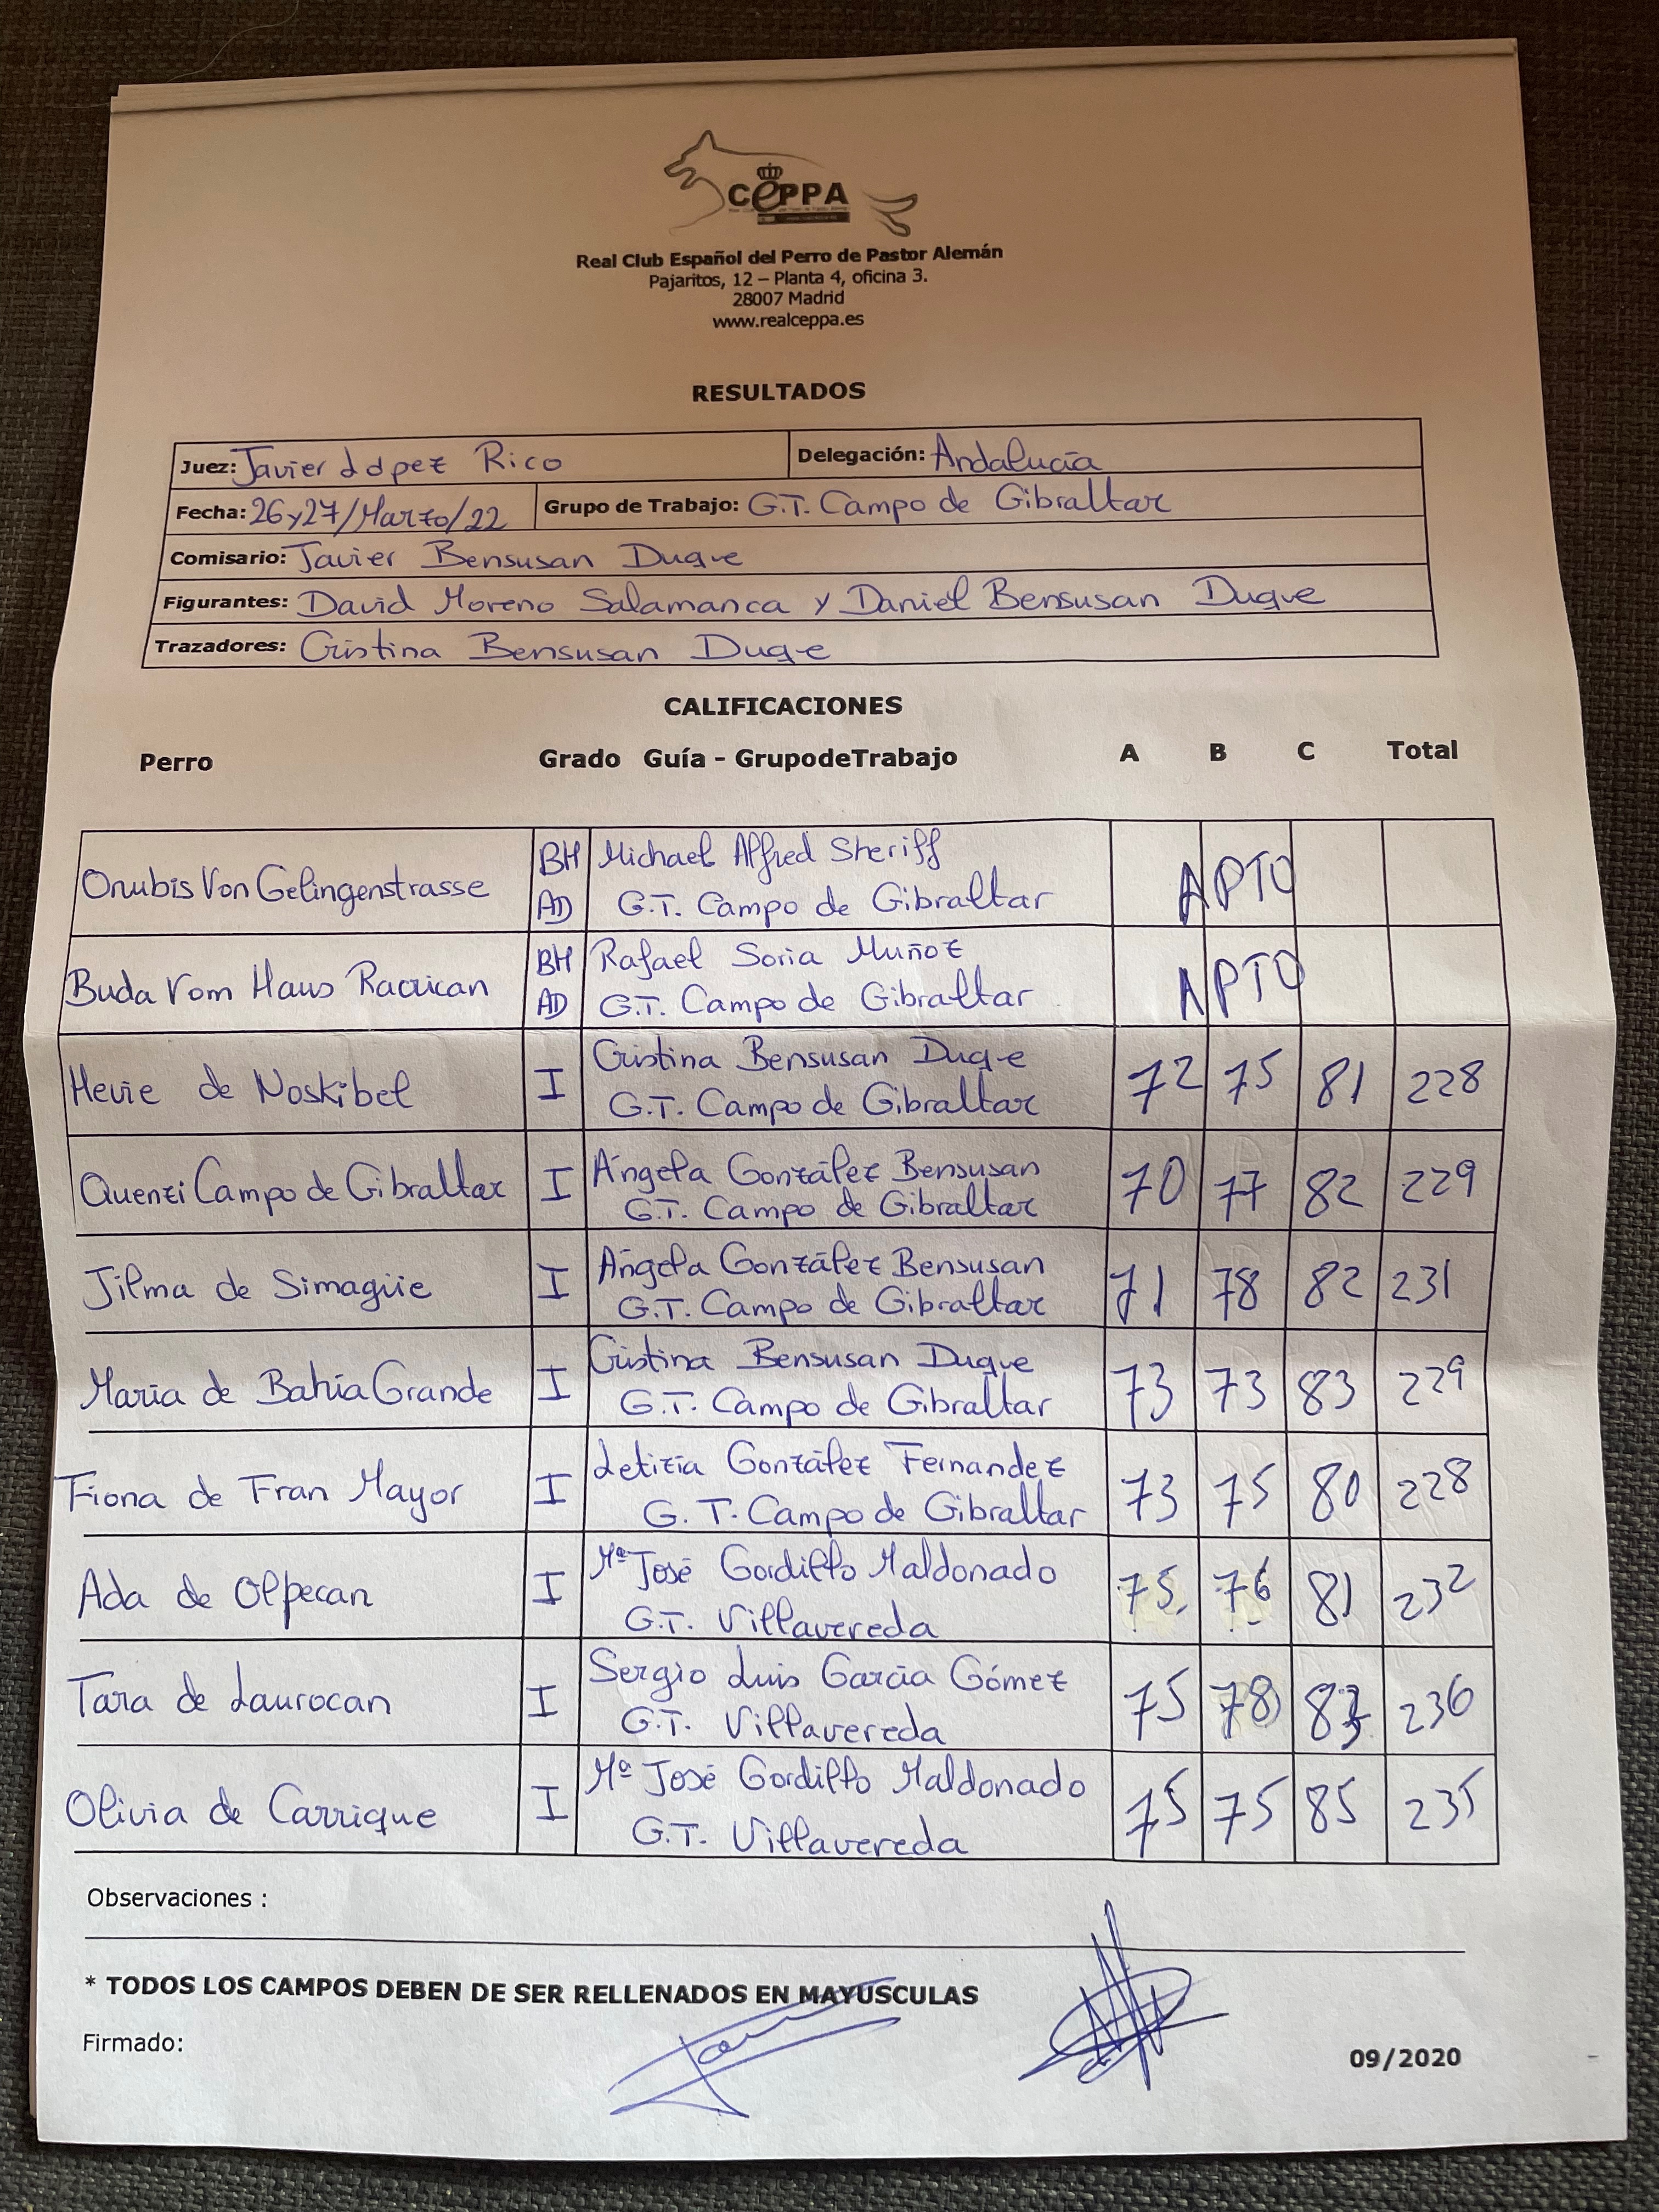 CEPPA
Real Club Español del Perro de Pastor Alemán
Pajaritos, 12 – Planta 4, oficina 3.
28007 Madrid
www.realceppa.es
RESULTADOS
Juez: Javier López Rico Delegación: Andalucía
Fecha: 26y27/Marzo/22 Grupo de Trabajo: G.T. Campo de Gibraltar
Comisario: Javier Bensusan Duque
Figurantes: David Moreno Salamanca y Daniel Bensusan Duque
Trazadores: Cristina Bensusan Duque
CALIFICACIONES
Perro Grado Guía - GrupodeTrabajo A B C Total
Onubis Von Gelingenstrasse BH AD Michael Alfred Sheriff
G.T. Campo de Gibraltar APTO
Buda Vom Haus Racrican BH AD Rafael Soria Muñoz
G.T. Campo de Gibraltar APTO
Hevie de Noskibel I Cristina Bensusan Duque
G.T. Campo de Gibraltar 72 75 81 228
Quenzi Campo de Gibraltar I Ángela González Bensusan
G.T. Campo de Gibraltar 70 77 82 229
Jilma de Simagüe I Ángela González Bensusan
G.T. Campo de Gibraltar 71 78 82 231
Maria de Bahía Grande I Cristina Bensusan Duque
G.T. Campo de Gibraltar 73 73 83 229
Fiona de Fran Mayor I Letizia González Fernandez
G.T. Campo de Gibraltar 73 75 80 228
Ada de Olpecan I Mª José Gordillo Maldonado
G.T. Villavereda 75 76 81 232
Tara de Laurocan I Sergio Luis García Gómez
G.T. Villavereda 75 78 83 236
Olivia de Carrique I Mª José Gordillo Maldonado
G.T. Villavereda 75 75 85 235
Observaciones :
* TODOS LOS CAMPOS DEBEN DE SER RELLENADOS EN MAYUSCULAS
Firmado:
09/2020